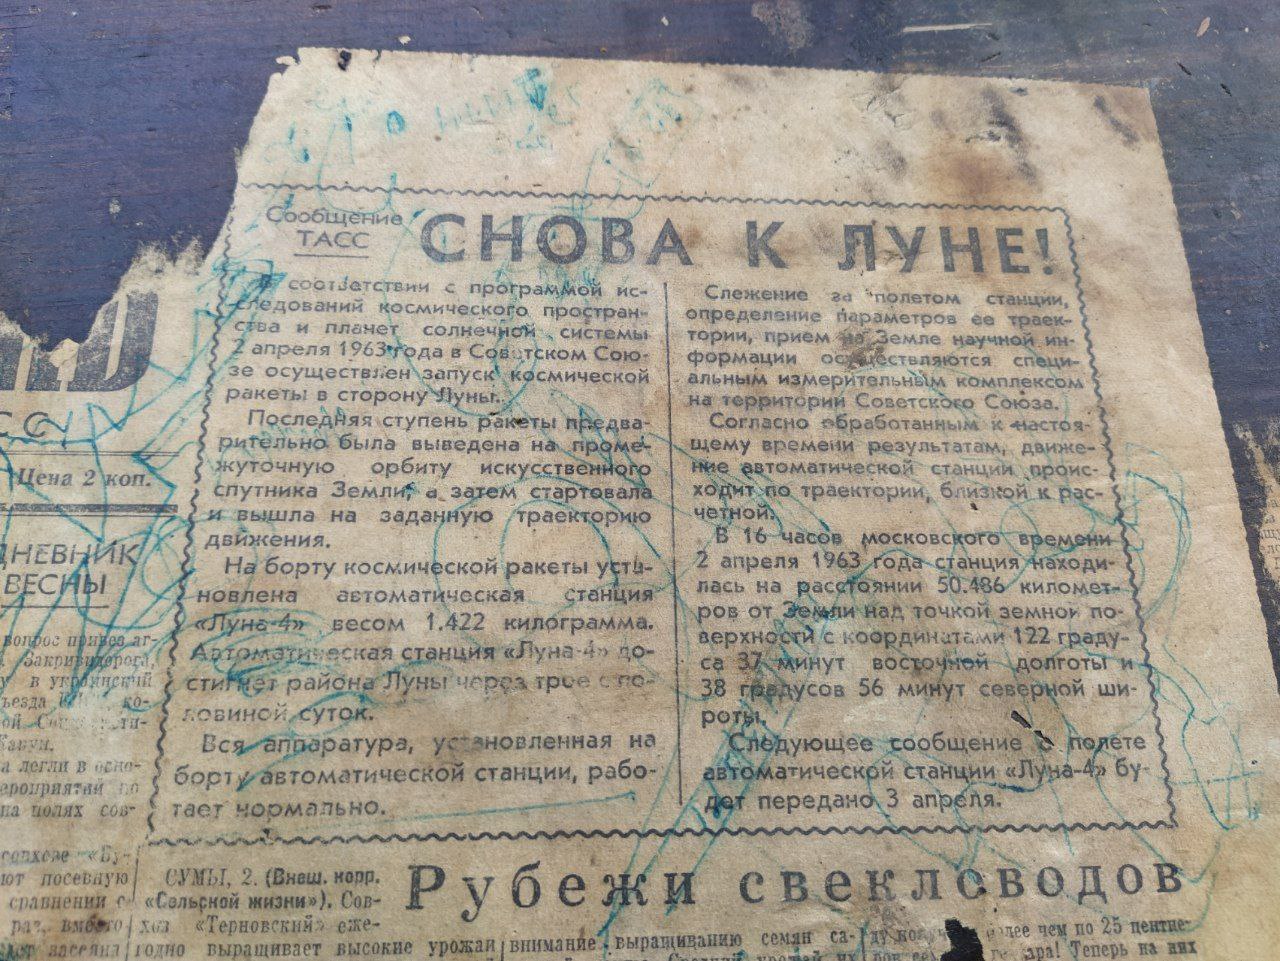 Сообщение
ТАСС
СНОВА К ЛУНЕ!
В соответствии с программой ис-
следований космического простран-
ства и планет солнечной системы
2 апреля 1963 года в Советском Сою-
зе осуществлен запуск космической
ракеты в сторону Луны.
Последняя ступень ракеты предва-
рительно была выведена на проме-
жуточную орбиту искусственного
спутника Земли, а затем стартовала
и вышла на заданную траекторию
движения.
На борту космической ракеты уста-
новлена автоматическая станция
«Луна-4» весом 1.422 килограмма.
Автоматическая станция «Луна-4» до-
стигнет района Луны через трое с по-
ловиной суток.
Вся аппаратура, установленная на
борту автоматической станции, рабо-
тает нормально.
Слежение за полетом станции,
определение параметров ее траек-
тории, прием на Земле научной ин-
формации осуществляются специ-
альным измерительным комплексом
на территории Советского Союза.
Согласно обработанным к настоя-
щему времени результатам, движе-
ние автоматической станции проис-
ходит по траектории, близкой к рас-
четной.
В 16 часов московского времени
2 апреля 1963 года станция находи-
лась на расстоянии 50.486 километ-
ров от Земли над точкой земной по-
верхности с координатами 122 граду-
са 37 минут восточной долготы и
38 градусов 56 минут северной ши-
роты.
Следующее сообщение о полете
автоматической станции «Луна-4» бу-
дет передано 3 апреля.
Цена 2 коп.
ДНЕВНИК
ВЕСНЫ
вопрос привез аг-
Закривидорога,
в украинский
ко-
легли в осно-
мероприятий по
на полях сов-
совхозе «Бу-
ют посевную
сравнении с
раз, вместо
засеяна
Рубежи свекловодов
СУМЫ, 2. (Внеш. корр.
«Сельской жизни»). Сов-
хоз «Терновский» еже-
годно выращивает высокие урожаи
внимание выращиванию семян са-
более чем по 25 центне-
Теперь на них